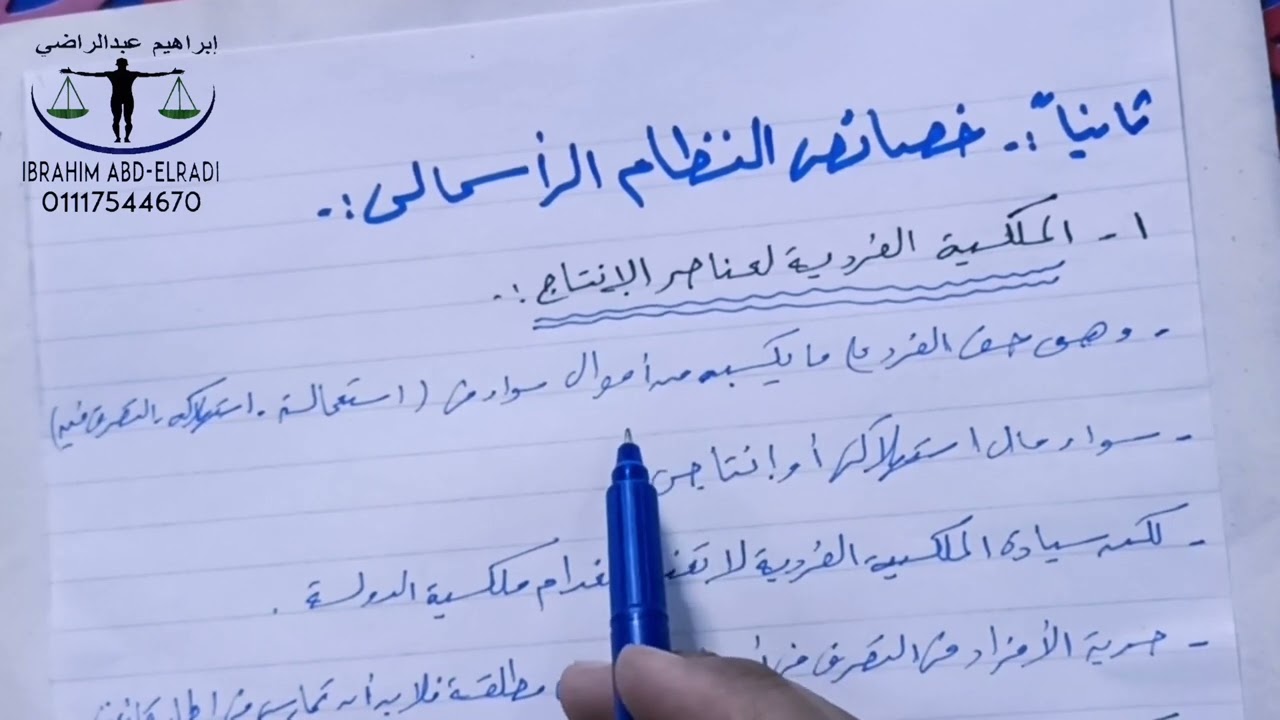 إبراهيم عبدالراضي
IBRAHIM ABD-ELRADI
01117544670
ثانياً :. خصائص النظام الرأسمالى :.
١- الملكية الفردية لعناصر الإنتاج :.
- وهى حق الفرد ما يكسبه من أموال سواء فى (استعمالة - استهلاكه - التصرف فيه)
- سواء مال استهلاكى أو إنتاجى
- لكن سيادة الملكية الفردية لا ملكية الدولة .
- حرية الأفراد فى التصرف فى مطلقة فلابد أن تمارس فى إطار